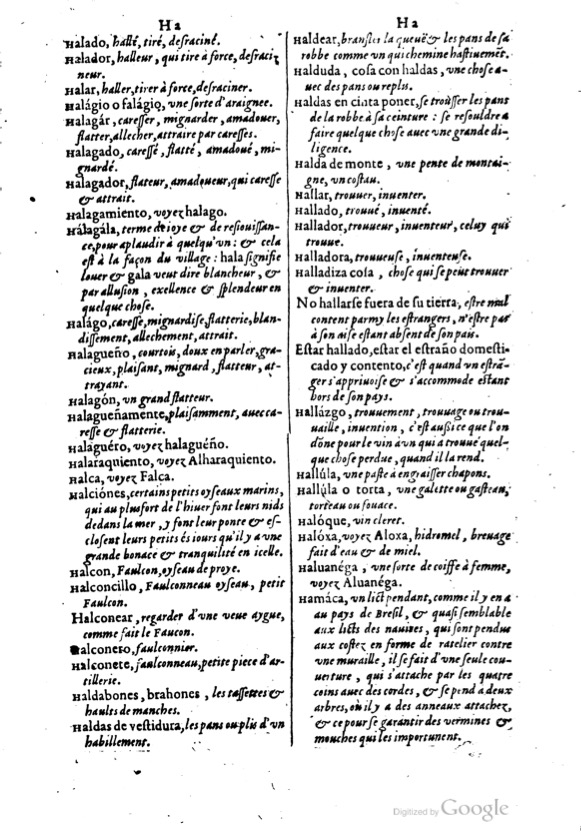 Ha
Halado, hallé, tiré, desraciné.
Halador, halleur, qui tire à force, desraci-
neur.
Halar, haller, tirer à force, desraciner.
Halágio o falágio, vne sorte d'araignee.
Halagár, caresser, mignarder, amadouer,
flatter, allecher, attraire par caresses.
Halagado, caressé, flatté, amadoué, mi-
gnardé.
Halagador, flateur, amadoueur, qui caresse
& attrait.
Halagamiento, voyez halago.
Hálagála, terme de ioye & de resiouissan-
ce, pour aplaudir à quelqu'vn: & cela
est à la façon du village: hala signifie
louer & gala veut dire blancheur, &
par allusion, exellence & splendeur en
quelque chose.
Halágo, caresse, mignardise, flatterie, blan-
dissement, allechement, attrait.
Halagueño, courtois, doux en parler, gra-
cieux, plaisant, mignard, flatteur, at-
trayant.
Halagón, vn grand flatteur.
Halagueñamente, plaisamment, auec ca-
resse & flatterie.
Halaguéro, voyez halaguéño.
Halaraquiento, voyez Alharaquiento.
Halca, voyez Falca.
Halciónes, certains petits oyseaux marins,
qui au plus fort de l'hiuer font leurs nids
dedans la mer, y font leur ponte & es-
closent leurs petits és iours qu'il y a vne
grande bonace & tranquilité en icelle.
Halcon, Faulcon, oyseau de proye.
Halconcillo, Faulconneau oyseau, petit
Faulcon.
Halconear, regarder d'vne veue aygue,
comme fait le Faucon.
Halconero, faulconnier.
Halconete, faulconneau, petite piece d'ar-
tillerie.
Haldabones, brahones, les tassettes &
haults de manches.
Haldas de vestidura, les pans ou plis d'vn
habillement.
Ha
Haldear, bransler la queuë & les pans de sa
robbe comme vn qui chemine hastiuemẽt.
Halduda, cosa con haldas, vne chose a-
uec des pans ou replis.
Haldas en cinta poner, se trousser les pans
de la robbe à sa ceinture: se resouldre a
faire quelque chose auec vne grande di-
ligence.
Halda de monte, vne pente de montai-
gne, vn costau.
Hallar, trouuer, inuenter.
Hallado, trouué, inuenté.
Hallador, trouueur, inuenteur, celuy qui
trouue.
Halladora, trouueuse, inuenteuse.
Halladiza cosa, chose qui se peut trouuer
& inuenter.
No hallarse fuera de su tierra, estre mal
content parmy les estrangers, n'estre pas
à son aise estant absent de son païs.
Estar hallado, estar el estraño domesti-
cado y contento, c'est quand vn estrã-
ger s'appriuoise & s'accommode estant
hors de son pays.
Hallázgo, trouuement, trouuage ou trou-
uaille, inuention, c'est aussi ce que l'on
dõne pour le vin à vn qui a trouué quel-
que chose perdue, quand il la rend.
Hallúla, vne paste à engraisser chapons.
Hallúla o torta, vne galette ou gasteau,
torteau ou fouace.
Halóque, vin cleret.
Halóxa, voyez Aloxa, hidromel, breuage
fait d'eau & de miel.
Haluanéga, vne sorte de coiffe à femme,
voyez Aluanéga.
Hamáca, vn lict pendant, comme il y en a
au pays de Bresil, & quasi semblable
aux licts des nauires, qui sont pendus
aux costez en forme de ratelier contre
vne muraille, il se fait d'vne seule cou-
uerture, qui s'attache par les quatre
coins auec des cordes, & se pend a deux
arbres, où il y a des anneaux attachez,
& ce pour se garantir des vermines &
mouches qui les importunent.
Digitized by Google